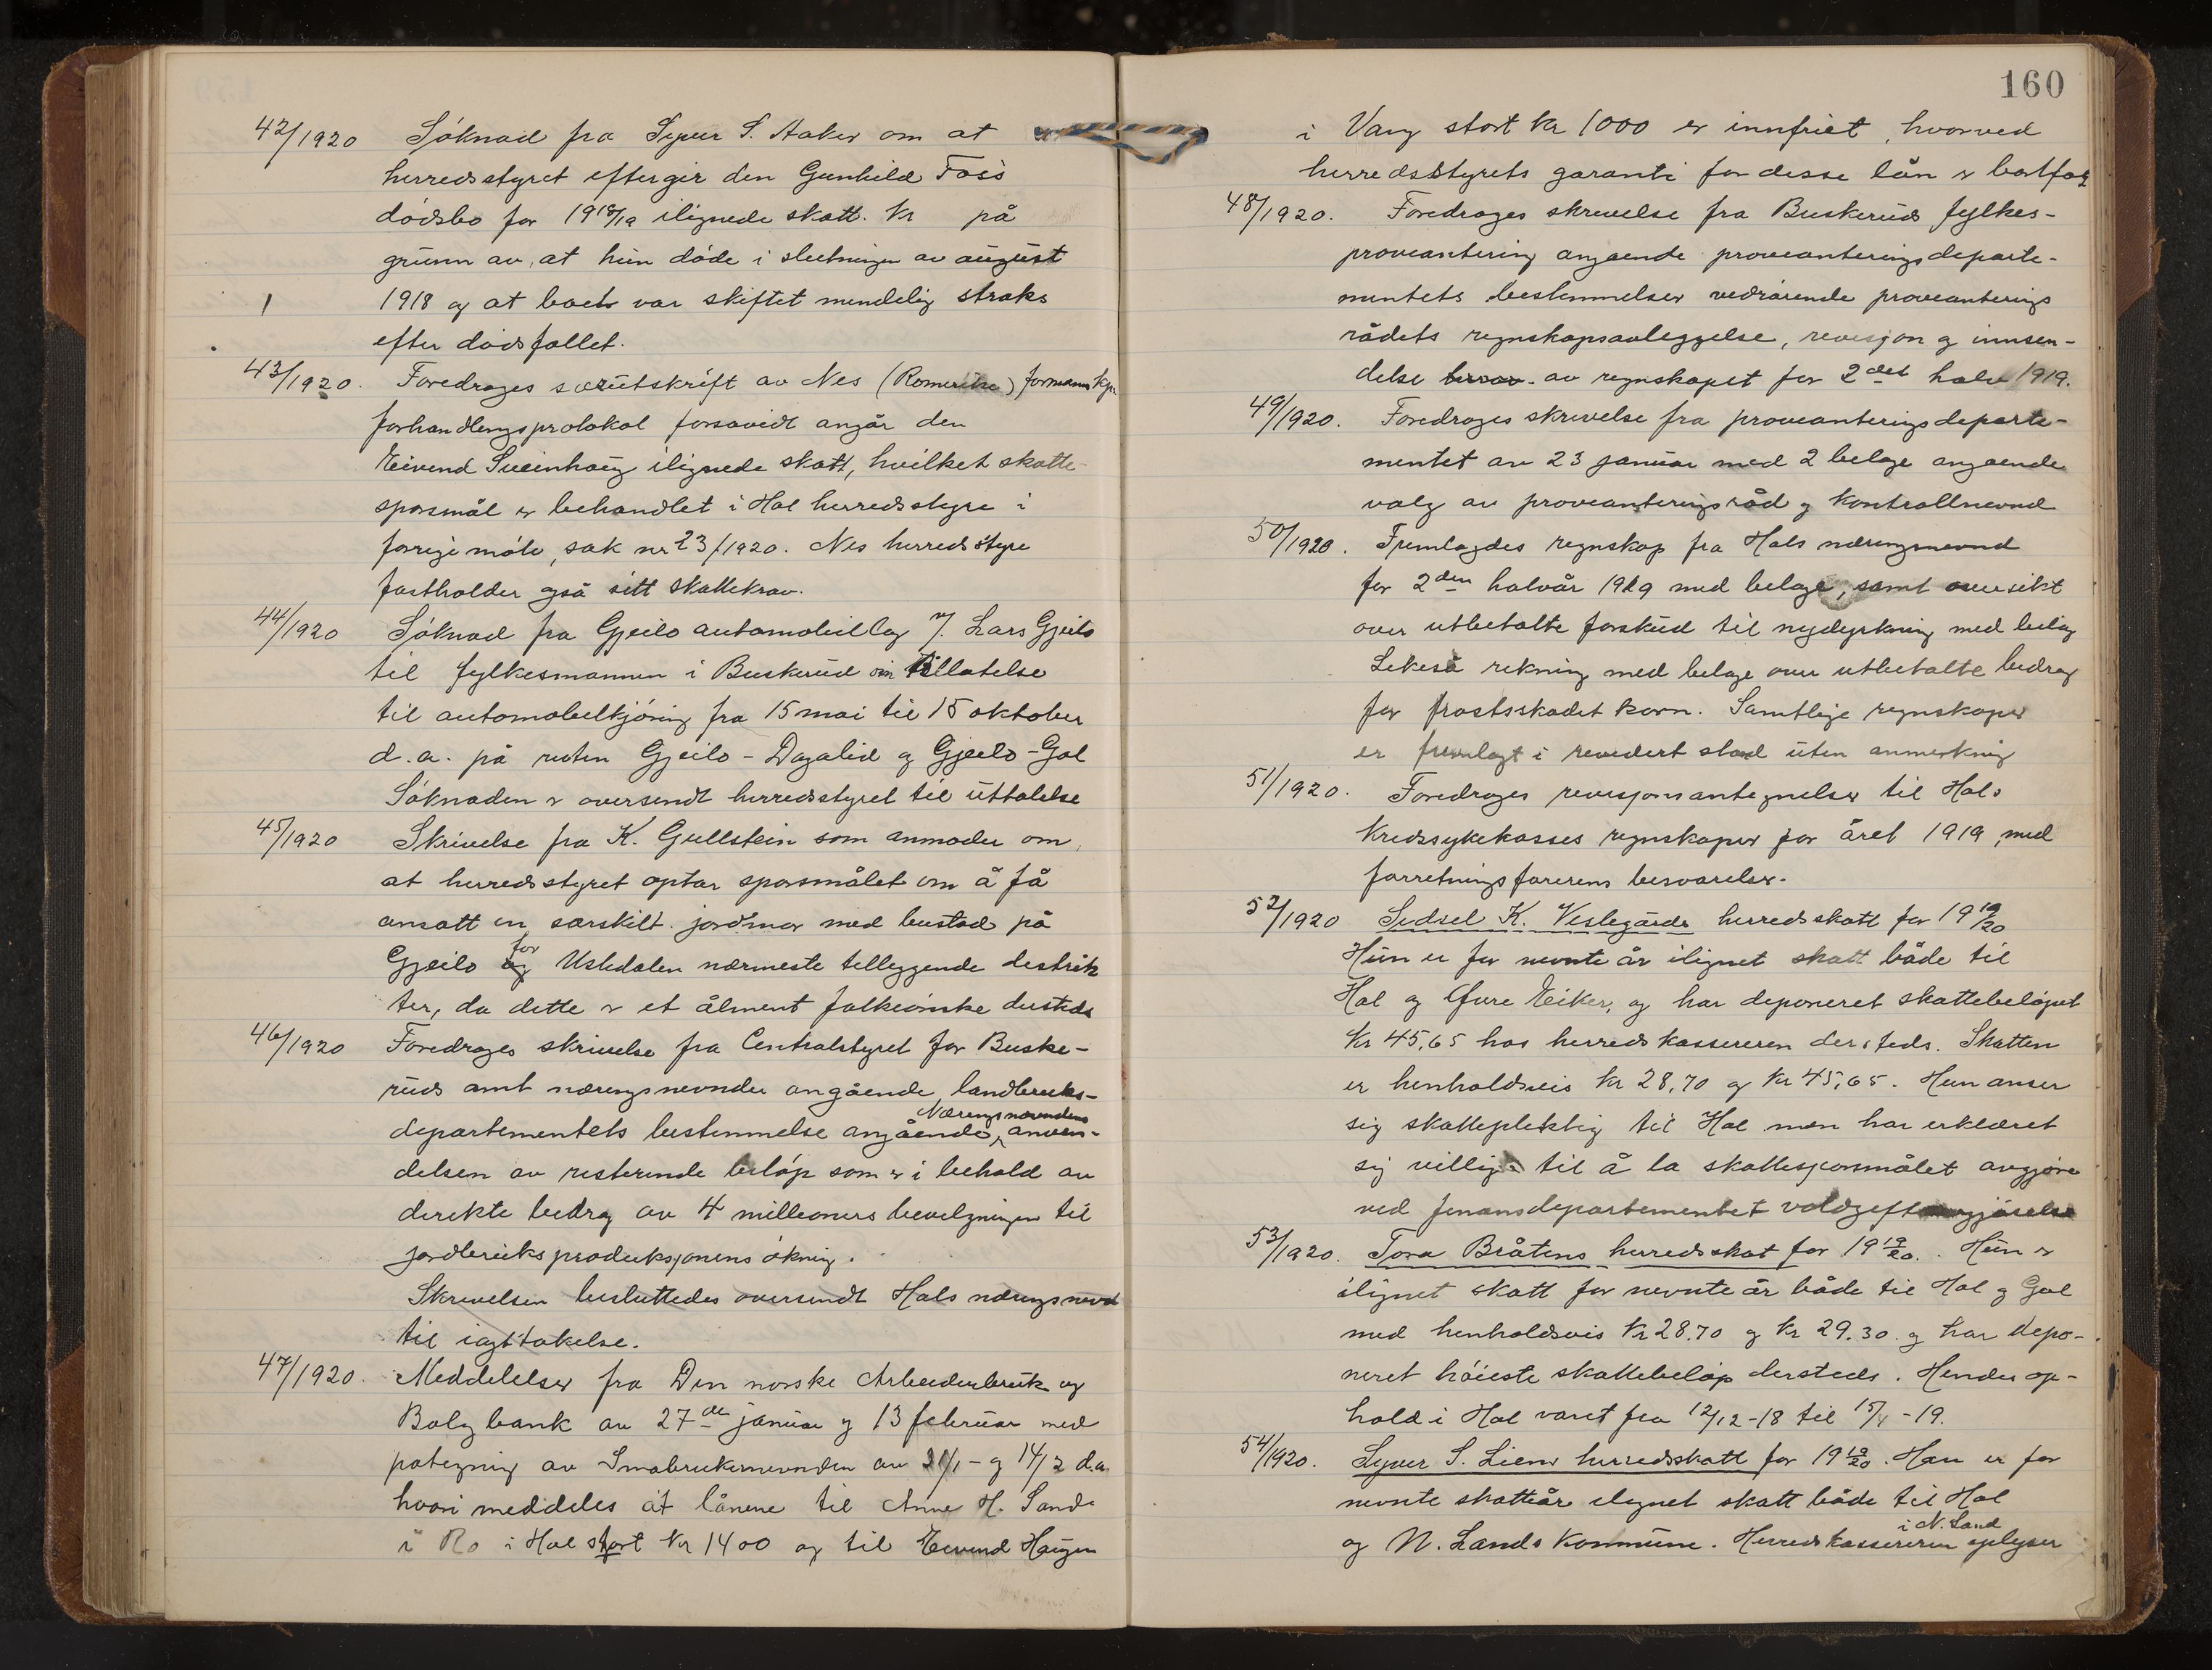 42/1920 Søknad fra Syver S. Aaker om at
herredsstyret eftergir den Gunhild Foss
dødsbo for 1918/19 ilignede skatt. kr på
grunn av, at hun døde i slutningen av august
1918 og at boet var skiftet mindelig straks
efter dødsfallet.
43/1920. Foredrages særutskrift av Nes (Romerike) formannskps
forhandlingsprotokol forsavidt angår den
Eivind Sveinhaug ilignede skatt, hvilket skatte-
spørsmål er behandlet i Hol herredsstyre i
forrige møte, sak nr 23/1920. Nes herredsstyre
fastholder også sitt skattekrav.
44/1920 Søknad fra Gjeilo automobillag v/. Lars Gjeilo
til fylkesmannen i Buskerud om tillatelse
til automobilkjøring fra 15 mai til 15 oktober
d.a. på ruten Gjeilo - Dagalid og Gjeilo - Gol
Søknaden er oversendt herredsstyret til uttalelse
45/1920 Skrivelse fra K. Gullstein som anmoder om,
at herredsstyret optar spørsmålet om å få
ansatt en særskilt jordmor med bustad på
Gjeilo for Ustedalen nærmeste tilleggende distrik
ter, da dette er et ålment folkeønske dersteds
46/1920 Foredrages skrivelse fra Centralstyret for Buske-
ruds amt næringsnevnder angående landbruks-
departementets bestemmelse angående, Næringsnevndens anven-
delsen av resterende beløp som er i behold av
direkte bidrag av 4 millioners bevilgningen til
jordbruksproduksjonens økning.
Skrivelsen besluttedes oversendt Hols næringsnevnd
til iagttakelse.
47/1920. Meddelelser fra Den norske Arbeiderbruk og
Bolig bank av 27de januar og 13 februar med
påtegning av Småbruknevnden av 31/1 - og 14/2 d.a.
hvori meddeles at lånene til Anne H. Sand
i Ro i Hol stort kr 1400 og til Eivind Haugen
160
i Vang stort kr 1000 er innfriet, hvorved
herredsstyrets garanti for disse lån er bortfal
48/1920. Foredrages skrivelse fra Buskeruds fylkes-
proveantering angaende proveanteringsdeparte-
mentets bestemmelser vedrørende proveanterings
rådets regnskapsavleggelse, revisjon og innsen-
delse av regnskapet for 2det halv 1919.
49/1920. Foredrages skrivelse fra proveanteringsdeparte-
mentet av 23 januar med 2 bilage angaende
valg av proveanteringsråd og kontrollnevnd
50/1920. Fremlagdes regnskap fra Hols næringsnevnd
for 2den halvår 1919 med bilage, samt oversikt
over utbetalte forskud til nydyrkning med bilag
Likeså rekning med bilage over utbetalte bidrag
for frostskadet korn. Samtlige regnskaper
er fremlagt i revidert stand uten anmerkning
51/1920. Foredrages revisjonsantegnelser til Hols
kredssykekasses regnskaper for året 1919, med
forretningsførerens besvarelser.
52/1920 Sidsel K. Veslegårds herredsskatt for 19 19/20
Hun er for nevnte år ilignet skatt både til
Hol og Øvre Eiker, og har deponeret skattebeløpet
kr 45,65 hos herredskassereren dersteds. Skatten
er henholdsvis kr 28,70 og kr 45,65. Hun anser
sig skattepliktig til Hol men har erklæret
sig villig til å la skattespørsmålet avgjøre
ved finansdepartementet voldgiftsavgjørelse
53/1920. Tora Bråtens herredsskat for 19 19/20. Hun er
ilignet skatt for nevnte år både til Hol og Gol
med henholdsvis kr 28.70 og kr 29.30 og har depo-
neret høieste skattebeløp dersteds. Hendes op-
hold i Hol varet fra 12/12 - 18 til 15/4 - 19.
54/1920. Syver S. Liens herredsskatt for 19 19/20. Han er for
nevnte skatteår ilignet skatt både til Hol
og N. Lands kommune. Herredskassereren i N. Land oplyser